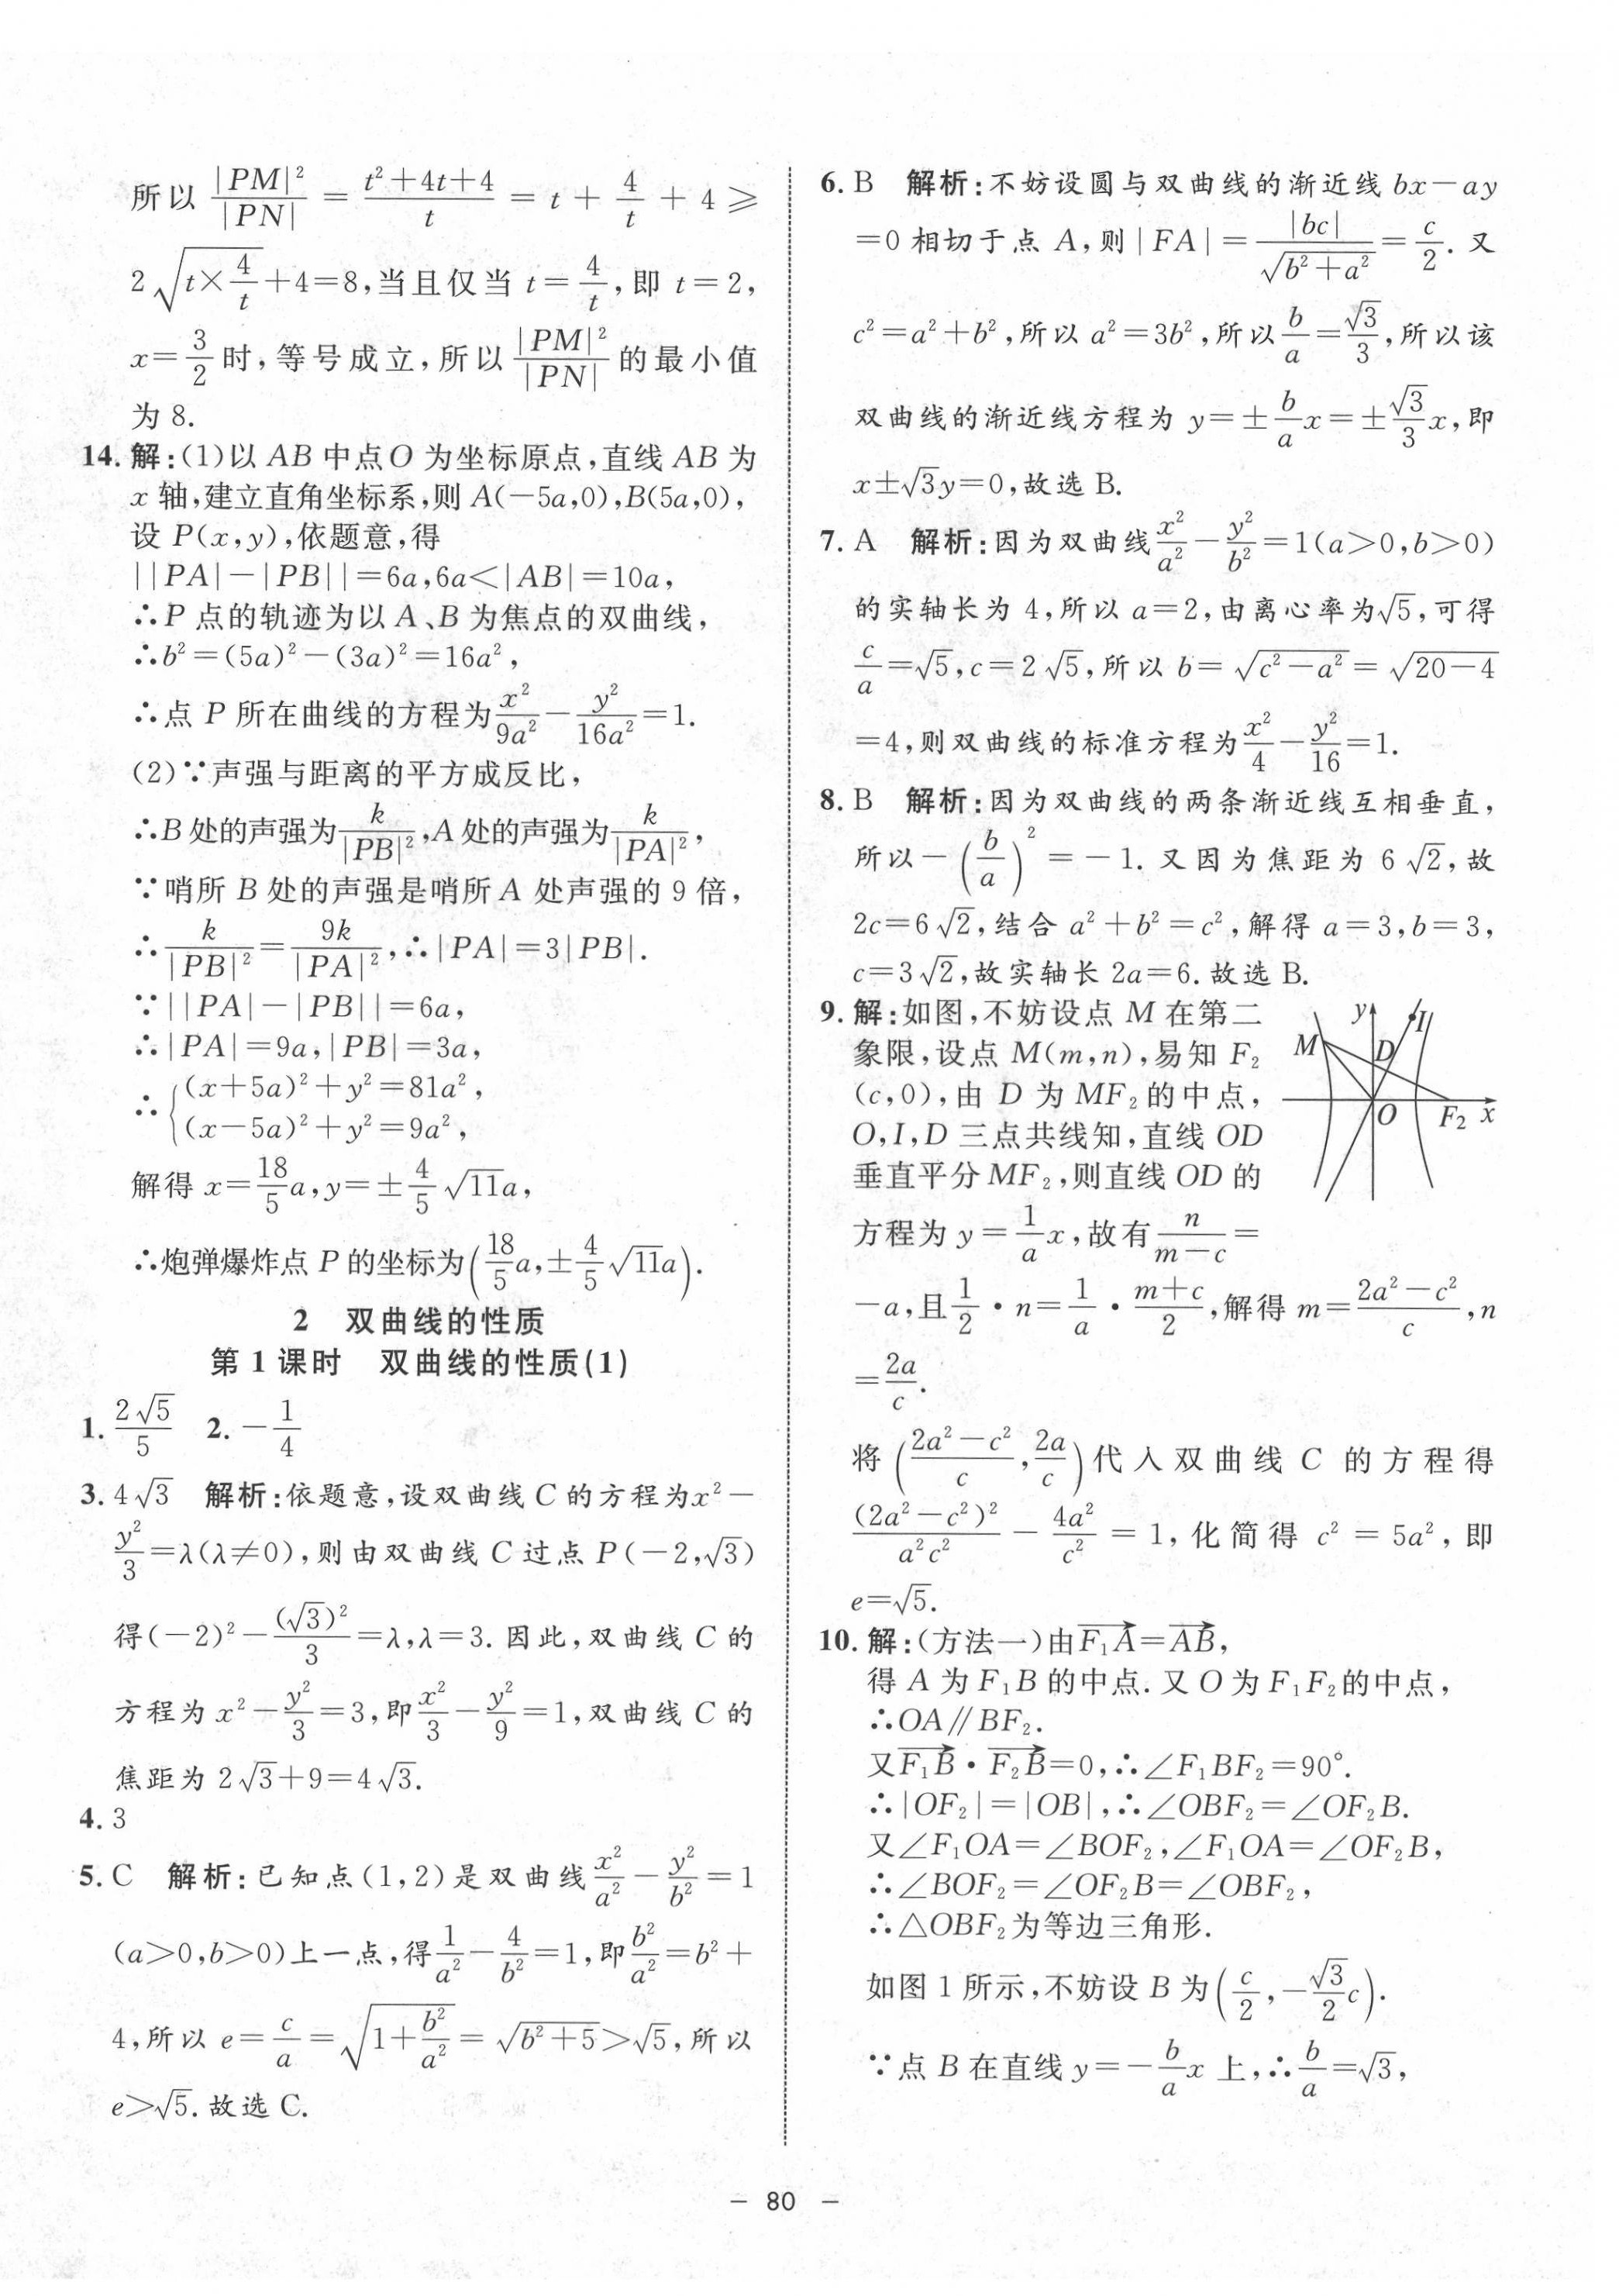 所以 |PM|²/|PN| = (t²+4t+4)/t = t + 4/t + 4 ⩾
2√(t×4/t)+4=8,当且仅当 t=4/t,即 t=2,
x=3/2时,等号成立,所以|PM|²/|PN|的最小值
为 8.
14. 解:(1)以 AB 中点O 为坐标原点,直线 AB 为
x 轴,建立直角坐标系,则 A(−5a,0),B(5a,0),
设 P(x,y),依题意,得
||PA|−|PB||=6a,6a<|AB|=10a,
∴P 点的轨迹为以 A、B 为焦点的双曲线,
∴b²=(5a)²−(3a)²=16a²,
∴点 P 所在曲线的方程为x²/9a²−y²/16a²=1.
(2)∵声强与距离的平方成反比,
∴B 处的声强为k/|PB|²,A 处的声强为k/|PA|²,
∵哨所 B 处的声强是哨所 A 处声强的 9 倍,
∴k/|PB|²=9k/|PA|²,∴|PA|=3|PB|.
∵||PA|−|PB||=6a,
∴|PA|=9a,|PB|=3a,
∴{(x+5a)²+y²=81a²,
(x−5a)²+y²=9a²,
解得 x=18/5a,y=±4/5√11a,
∴炮弹爆炸点 P 的坐标为(18/5a,±4/5√11a).
2 双曲线的性质
第 1 课时 双曲线的性质(1)
1. 2√5/5 2. −1/4
3. 4√3 解析:依题意,设双曲线 C 的方程为x²−
y²/3=λ(λ≠0),则由双曲线 C 过点 P(−2,√3)
得(−2)²−(√3)²/3=λ,λ=3. 因此,双曲线 C 的
方程为 x²−y²/3=3,即x²/3−y²/9=1,双曲线 C 的
焦距为 2√3+9=4√3.
4. 3
5. C 解析:已知点(1,2)是双曲线x²/a²−y²/b²=1
(a>0,b>0)上一点,得1/a²−4/b²=1,即b²/a²=b²+
4,所以 e=c/a=√(1+b²/a²)=√(b²+5)>√5,所以
e>√5. 故选 C.
6. B 解析:不妨设圆与双曲线的渐近线 bx−ay
=0 相切于点 A,则|FA|=|bc|/√(b²+a²)=c/2. 又
c²=a²+b²,所以 a²=3b²,所以b/a=√3/3,所以该
双曲线的渐近线方程为 y=±b/a x=±√3/3 x,即
x±√3y=0,故选 B.
7. A 解析:因为双曲线x²/a²−y²/b²=1(a>0,b>0)
的实轴长为 4,所以 a=2,由离心率为√5,可得
c/a=√5,c=2√5,所以 b=√(c²−a²)=√(20−4)
=4,则双曲线的标准方程为x²/4−y²/16=1.
8. B 解析:因为双曲线的两条渐近线互相垂直,
所以−(b/a)²=−1. 又因为焦距为 6√2,故
2c=6√2,结合 a²+b²=c²,解得 a=3,b=3,
c=3√2,故实轴长 2a=6. 故选 B.
9. 解:如图,不妨设点 M 在第二
象限,设点 M(m,n),易知 F₂
(c,0),由 D 为 MF₂的中点,
O,I,D 三点共线知,直线 OD
垂直平分 MF₂,则直线 OD 的
方程为 y=1/a x,故有n/(m−c)=
y
I
M
D
O
F₂
x
−a,且1/2·n=1/a·(m+c)/2,解得 m=(2a²−c²)/c,n
=2a/c.
将((2a²−c²)/c,2a/c)代入双曲线 C 的方程得
(2a²−c²)²/a²c²−4a²/c²=1,化简得 c²=5a²,即
e=√5.
10. 解:(方法一)由F₁A⃗=AB⃗,
得 A 为 F₁B 的中点. 又 O 为 F₁F₂的中点,
∴OA∥BF₂.
又F₁B⃗·F₂B⃗=0,∴∠F₁BF₂=90°.
∴|OF₂|=|OB|,∴∠OBF₂=∠OF₂B.
又∠F₁OA=∠BOF₂,∠F₁OA=∠OF₂B,
∴∠BOF₂=∠OF₂B=∠OBF₂,
∴△OBF₂为等边三角形.
如图 1 所示,不妨设 B 为(c/2,−√3/2c).
∵点 B 在直线 y=−b/a x 上,∴b/a=√3,
− 80 −